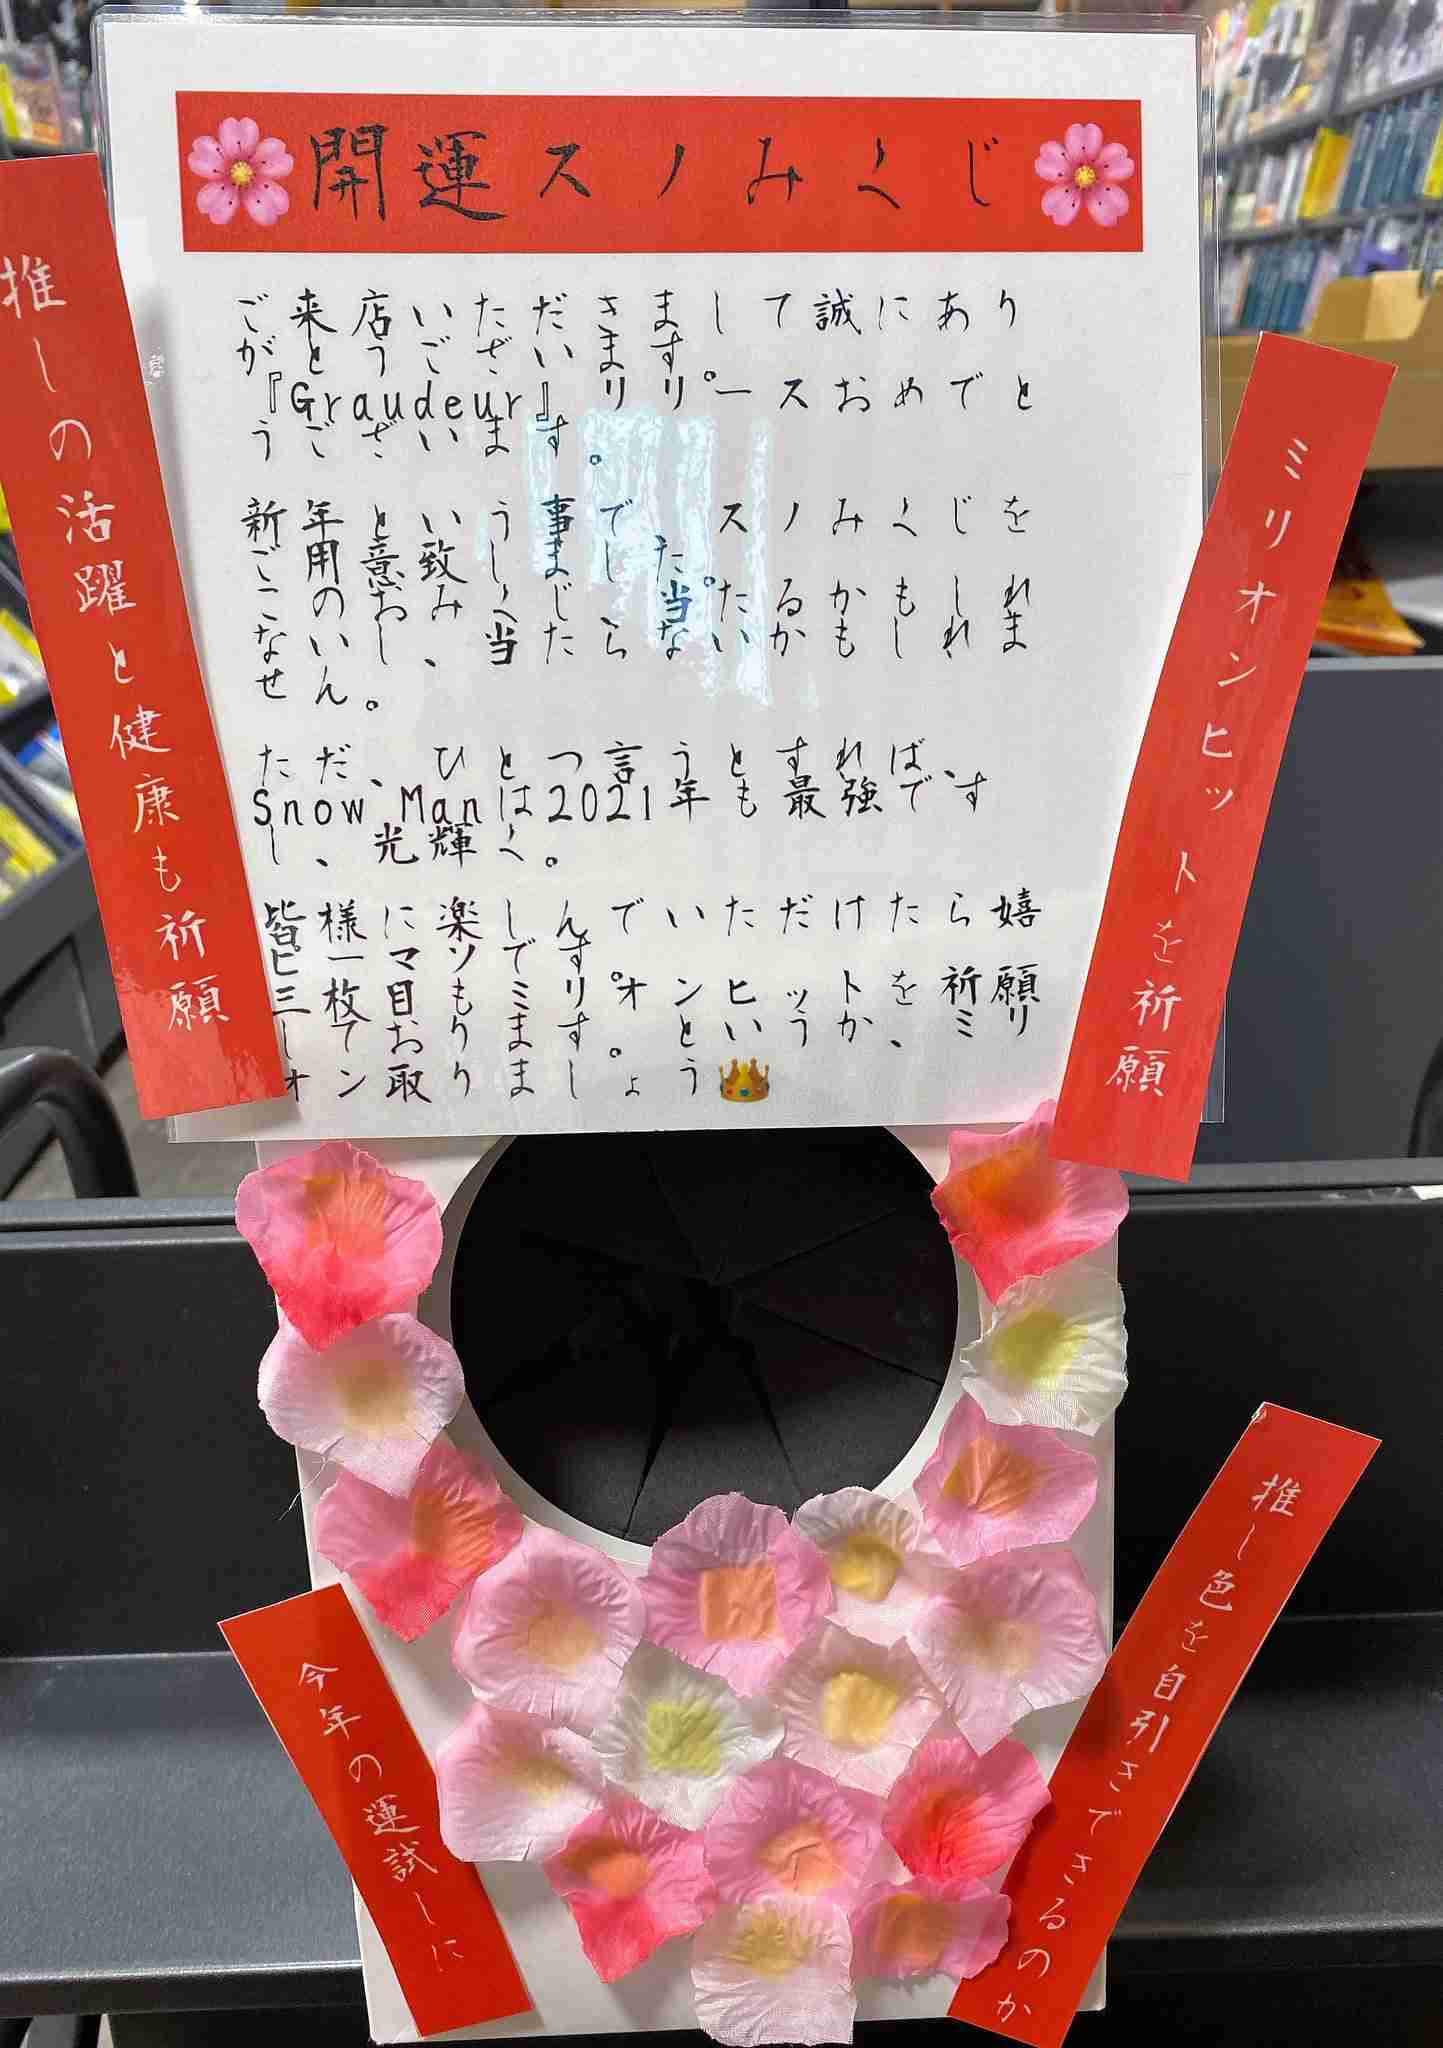 開運スノみくじ
ご来店いただきまして誠にあり
がとうございます。
『Graudeur』リリースおめでと
うございます。
新年という事で、スノみくじを
ご用意致しました。
このおみくじ、当たるかもしれ
ないし、当たらないかもしれま
せん。
ただ、ひとつ言うとすれば、
Snow Manは2021年も最強です
し、光輝く。
皆様に楽しんでいただけたら嬉
ピーマンです。
三枚目もミリオンヒットを祈願
しております。というか、ミリ
オン取りましょう
推しの活躍と健康も祈願
ミリオンヒットを祈願
今年の運試しに
推し色を自引きできるのか